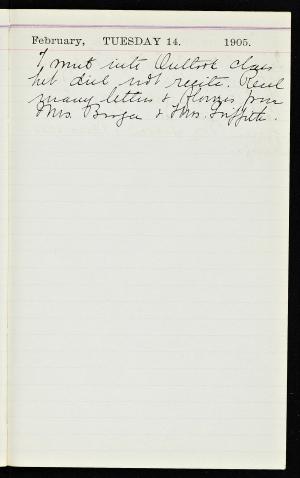 February, TUESDAY 14. 1905.
I went into Outlook class
but did not recite. Recd
many letters & flowers from
Mrs. Brogan & Mrs. Griffith.